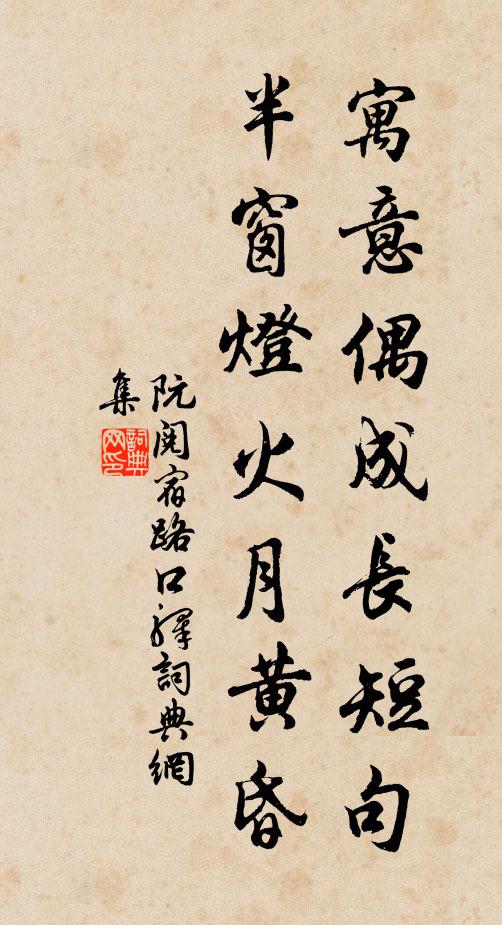 寓意偶成長短句
半窗燈火月黃昏
阮閱宿路口驛詞典網
集
詞典
網印